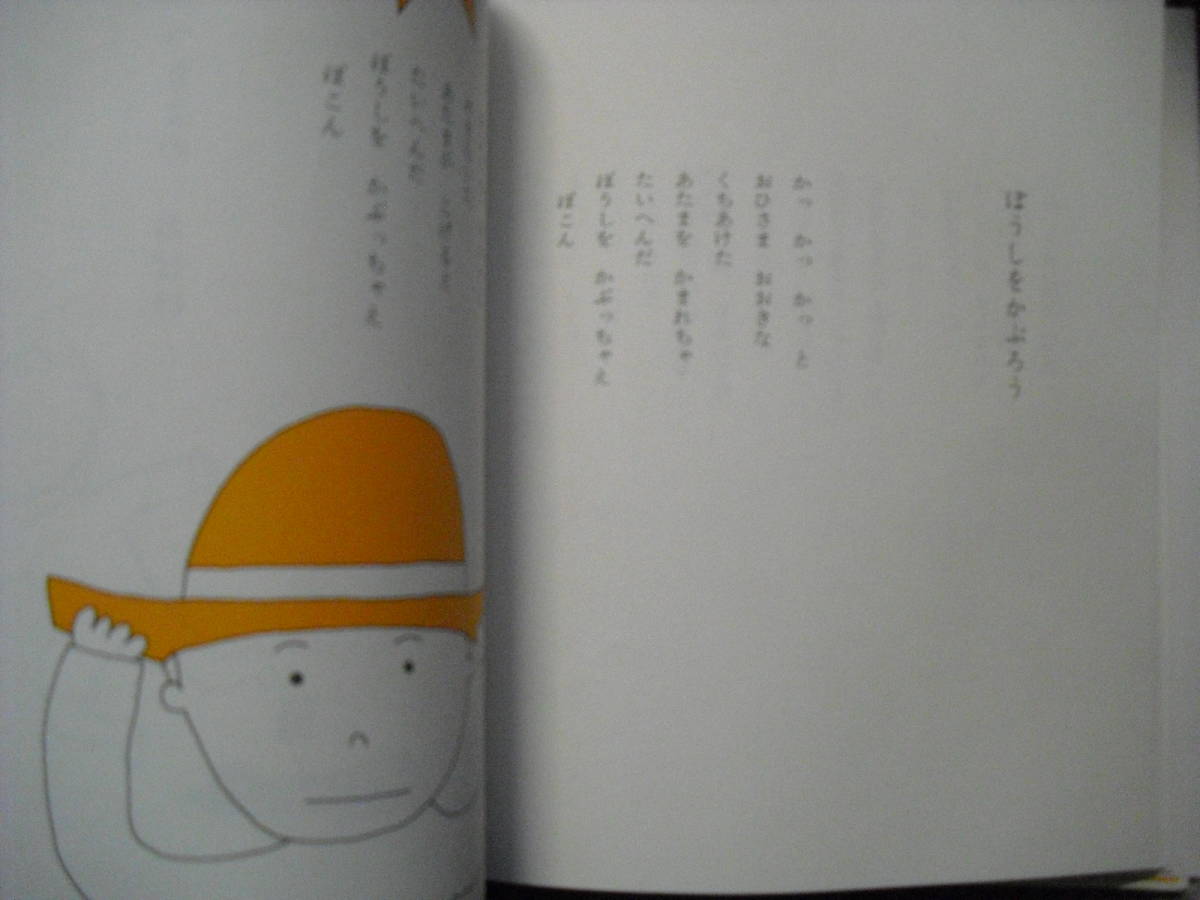 ぼうしをかぶろう
かっ かっ かっ と
おひさま おおきな
くちあけた
あたまを かまれちゃ
たいへんだ
ぼうしを かぶっちゃえ
ぼこん
たいへんだ
ぼうしを かぶっちゃえ
ぼこん